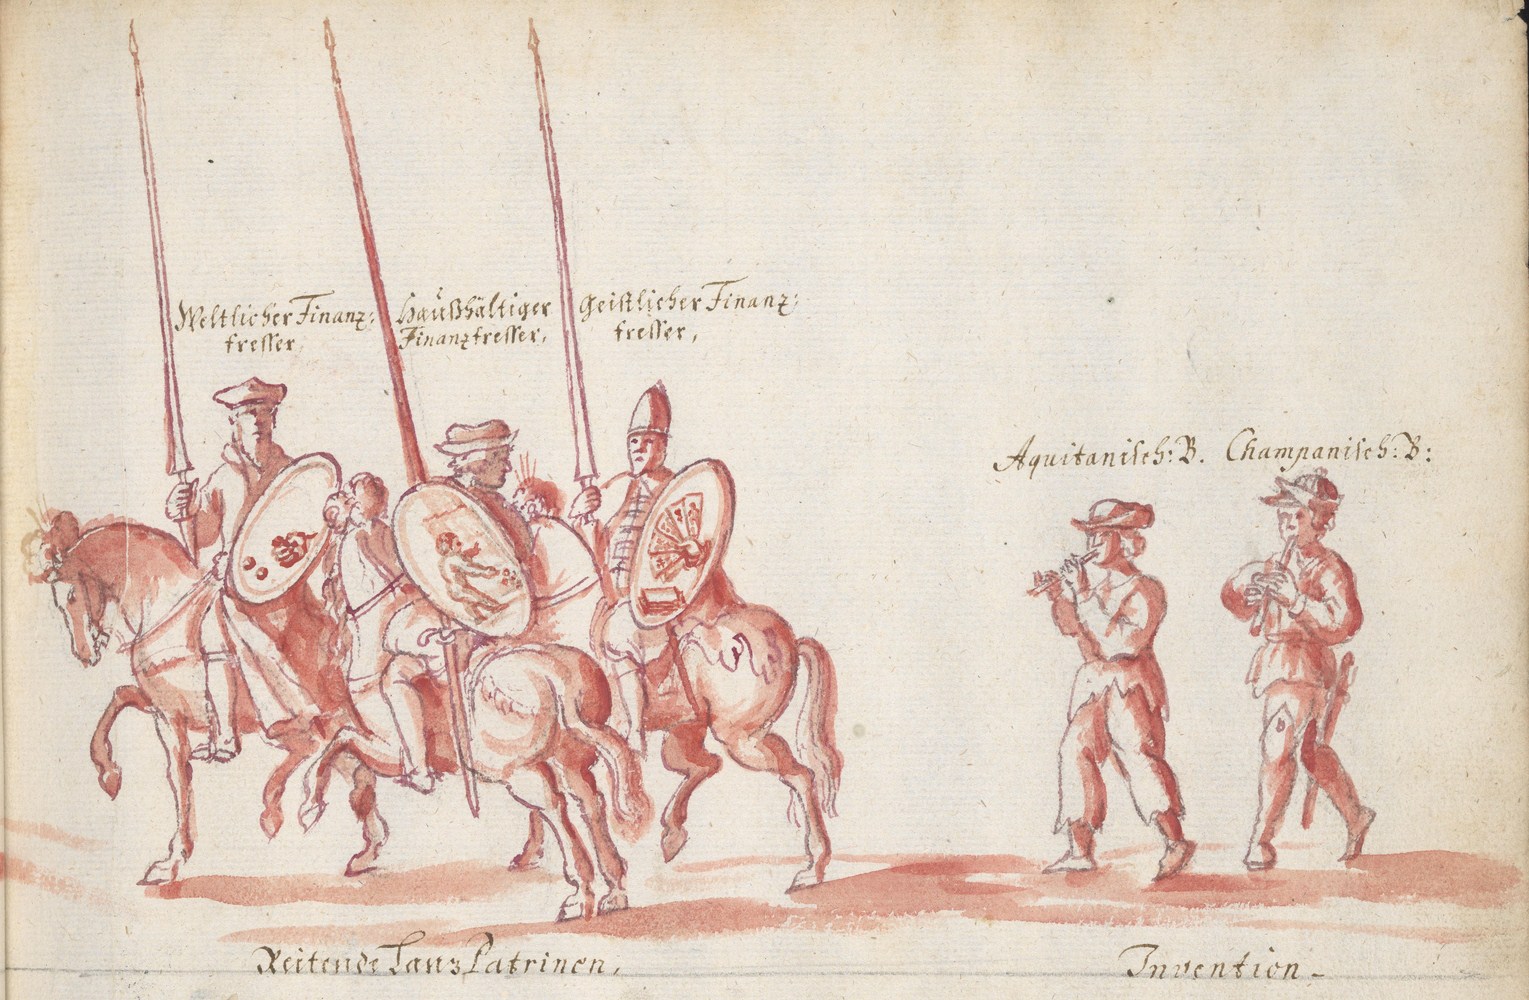 Weltlicher Finanz:
fresser
Haußhältiger
Finanzfresser,
Geistlicher Finanz:
fresser,
Aquitanisch: B. Champanisch: B:
Reitende Lanz Patrinen,
Invention -